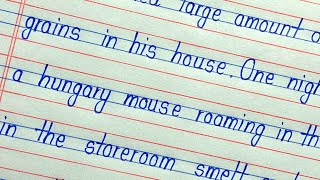 large amount o
grains in his house. One nigh
a hungary mouse roaming in th
in the storeroom smelt